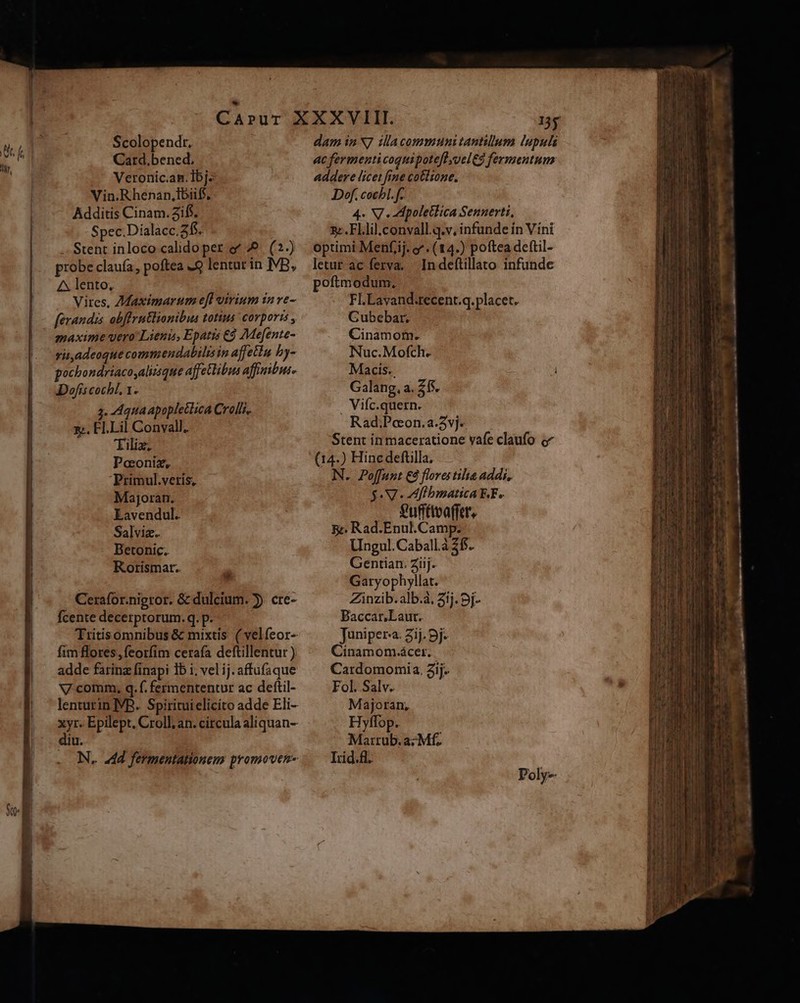 Caput XXXVIII. 135
Scolopendr.
Card.bened.
Veronic.an. ℔j.
Vin.Rhenan.℔iiß.
Additis Cinam.ʒiß.
Spec.Dialacc.ʒß.
Stent in loco calido per (2.)
probe clausa, postea lentur in MB,
🜂 lento,
Vires, Maximarum est virium in re-
ſerandis obſtructionibus totius corporis,
maxime vero Lienis, Epatis & Meſente-
rii, adeoque commendabilis in affectu hy-
pochondriaco, aliisque affectibus affinibus.
Doſis cochl. 1.
3. Aqua apoplectica Crolli.
℞. Fl.Lil Convall.
Tiliæ,
Pæoniæ,
Primul.veris,
Majoran.
Lavendul.
Salviæ.
Betonic.
Rorismar.
Ceraſor.nigror. & dulcium. ) cre-
ſcente decerptorum. q. p.
Tritis omnibus & mixtis (vel ſeor-
ſim flores, ſeorſim ceraſa deſtillentur)
adde farinæ ſinapi ℔ i. vel ij. affuſaque
🜄 comm. q. ſ. fermententur ac deſtil-
lentur in MB. Spiritui elicito adde Eli-
xyr. Epilept. Croll. an. circula aliquan-
diu.
N. Ad fermentationem promoven-
dam in 🜄 illa communi tantillum lupuli
ac fermenti coqui poteſt, vel & fermentum
addere licet ſine coctione.
Doſ. cochl. ſ.
4. 🜄. Apoplectica Sennerti.
℞. Fl.lil.convall.q.v. infunde in Vini
optimi Menſ.ij. (14.) poſtea deſtil-
letur ac ſerva. In deſtillato infunde
poſtmodum,
Fl.Lavand.recent.q.placet.
Cubebar.
Cinamom.
Nuc.Moſch.
Macis.
Galang. a. ʒß.
Viſc.quern.
Rad.Pæon.a.ʒvj.
Stent in maceratione vaſe clauſo
(14.) Hinc deſtilla.
N. Poſſunt & flores tiliæ addi.
5. 🜄. Aſthmatica F.F.
Lufftwaſſer.
℞. Rad.Enul.Camp.
Ungul.Caball.à ʒß.
Gentian. ʒiij.
Garyophyllat.
Zinzib.alb.à. ʒij.℈j.
Baccar.Laur.
Juniper.a. ʒij.℈j.
Cinamom.acer.
Cardomomia. ʒij.
Fol. Salv.
Majoran.
Hyſſop.
Marrub.a.Mſ.
Irid.fl.
Poly-